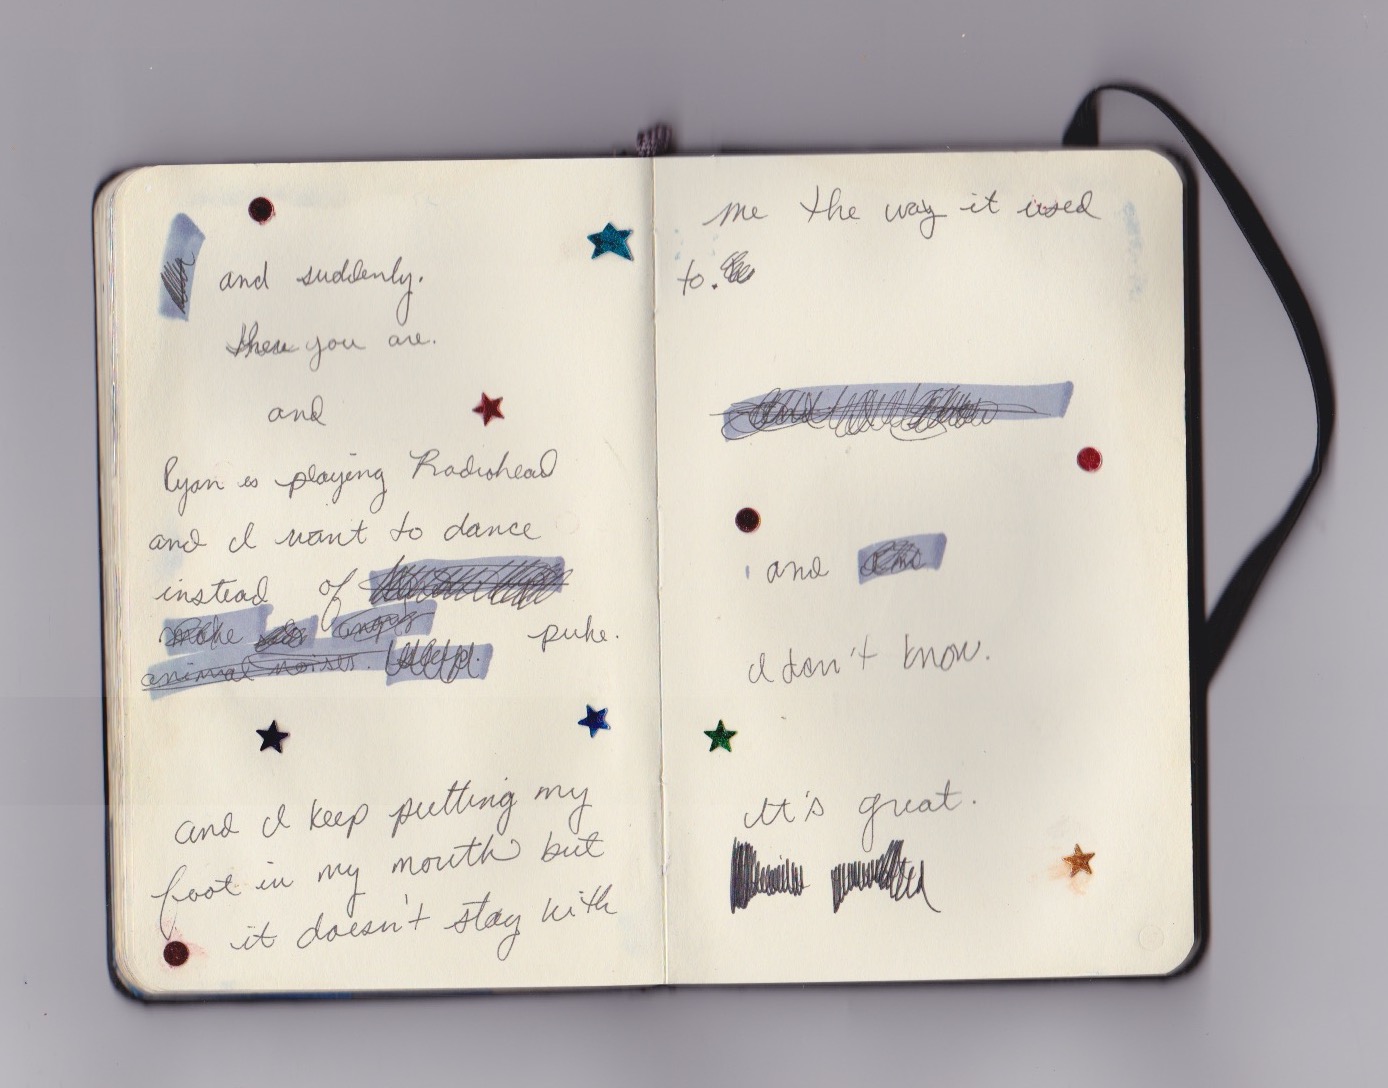 and suddenly.
there you are.
and
Ryan is playing Radiohead
and I want to dance
instead of
make puke.
animal noises.
and I keep putting my
foot in my mouth but
it doesn't stay with
me the way it used
to.
and
I don't know.
It's great.